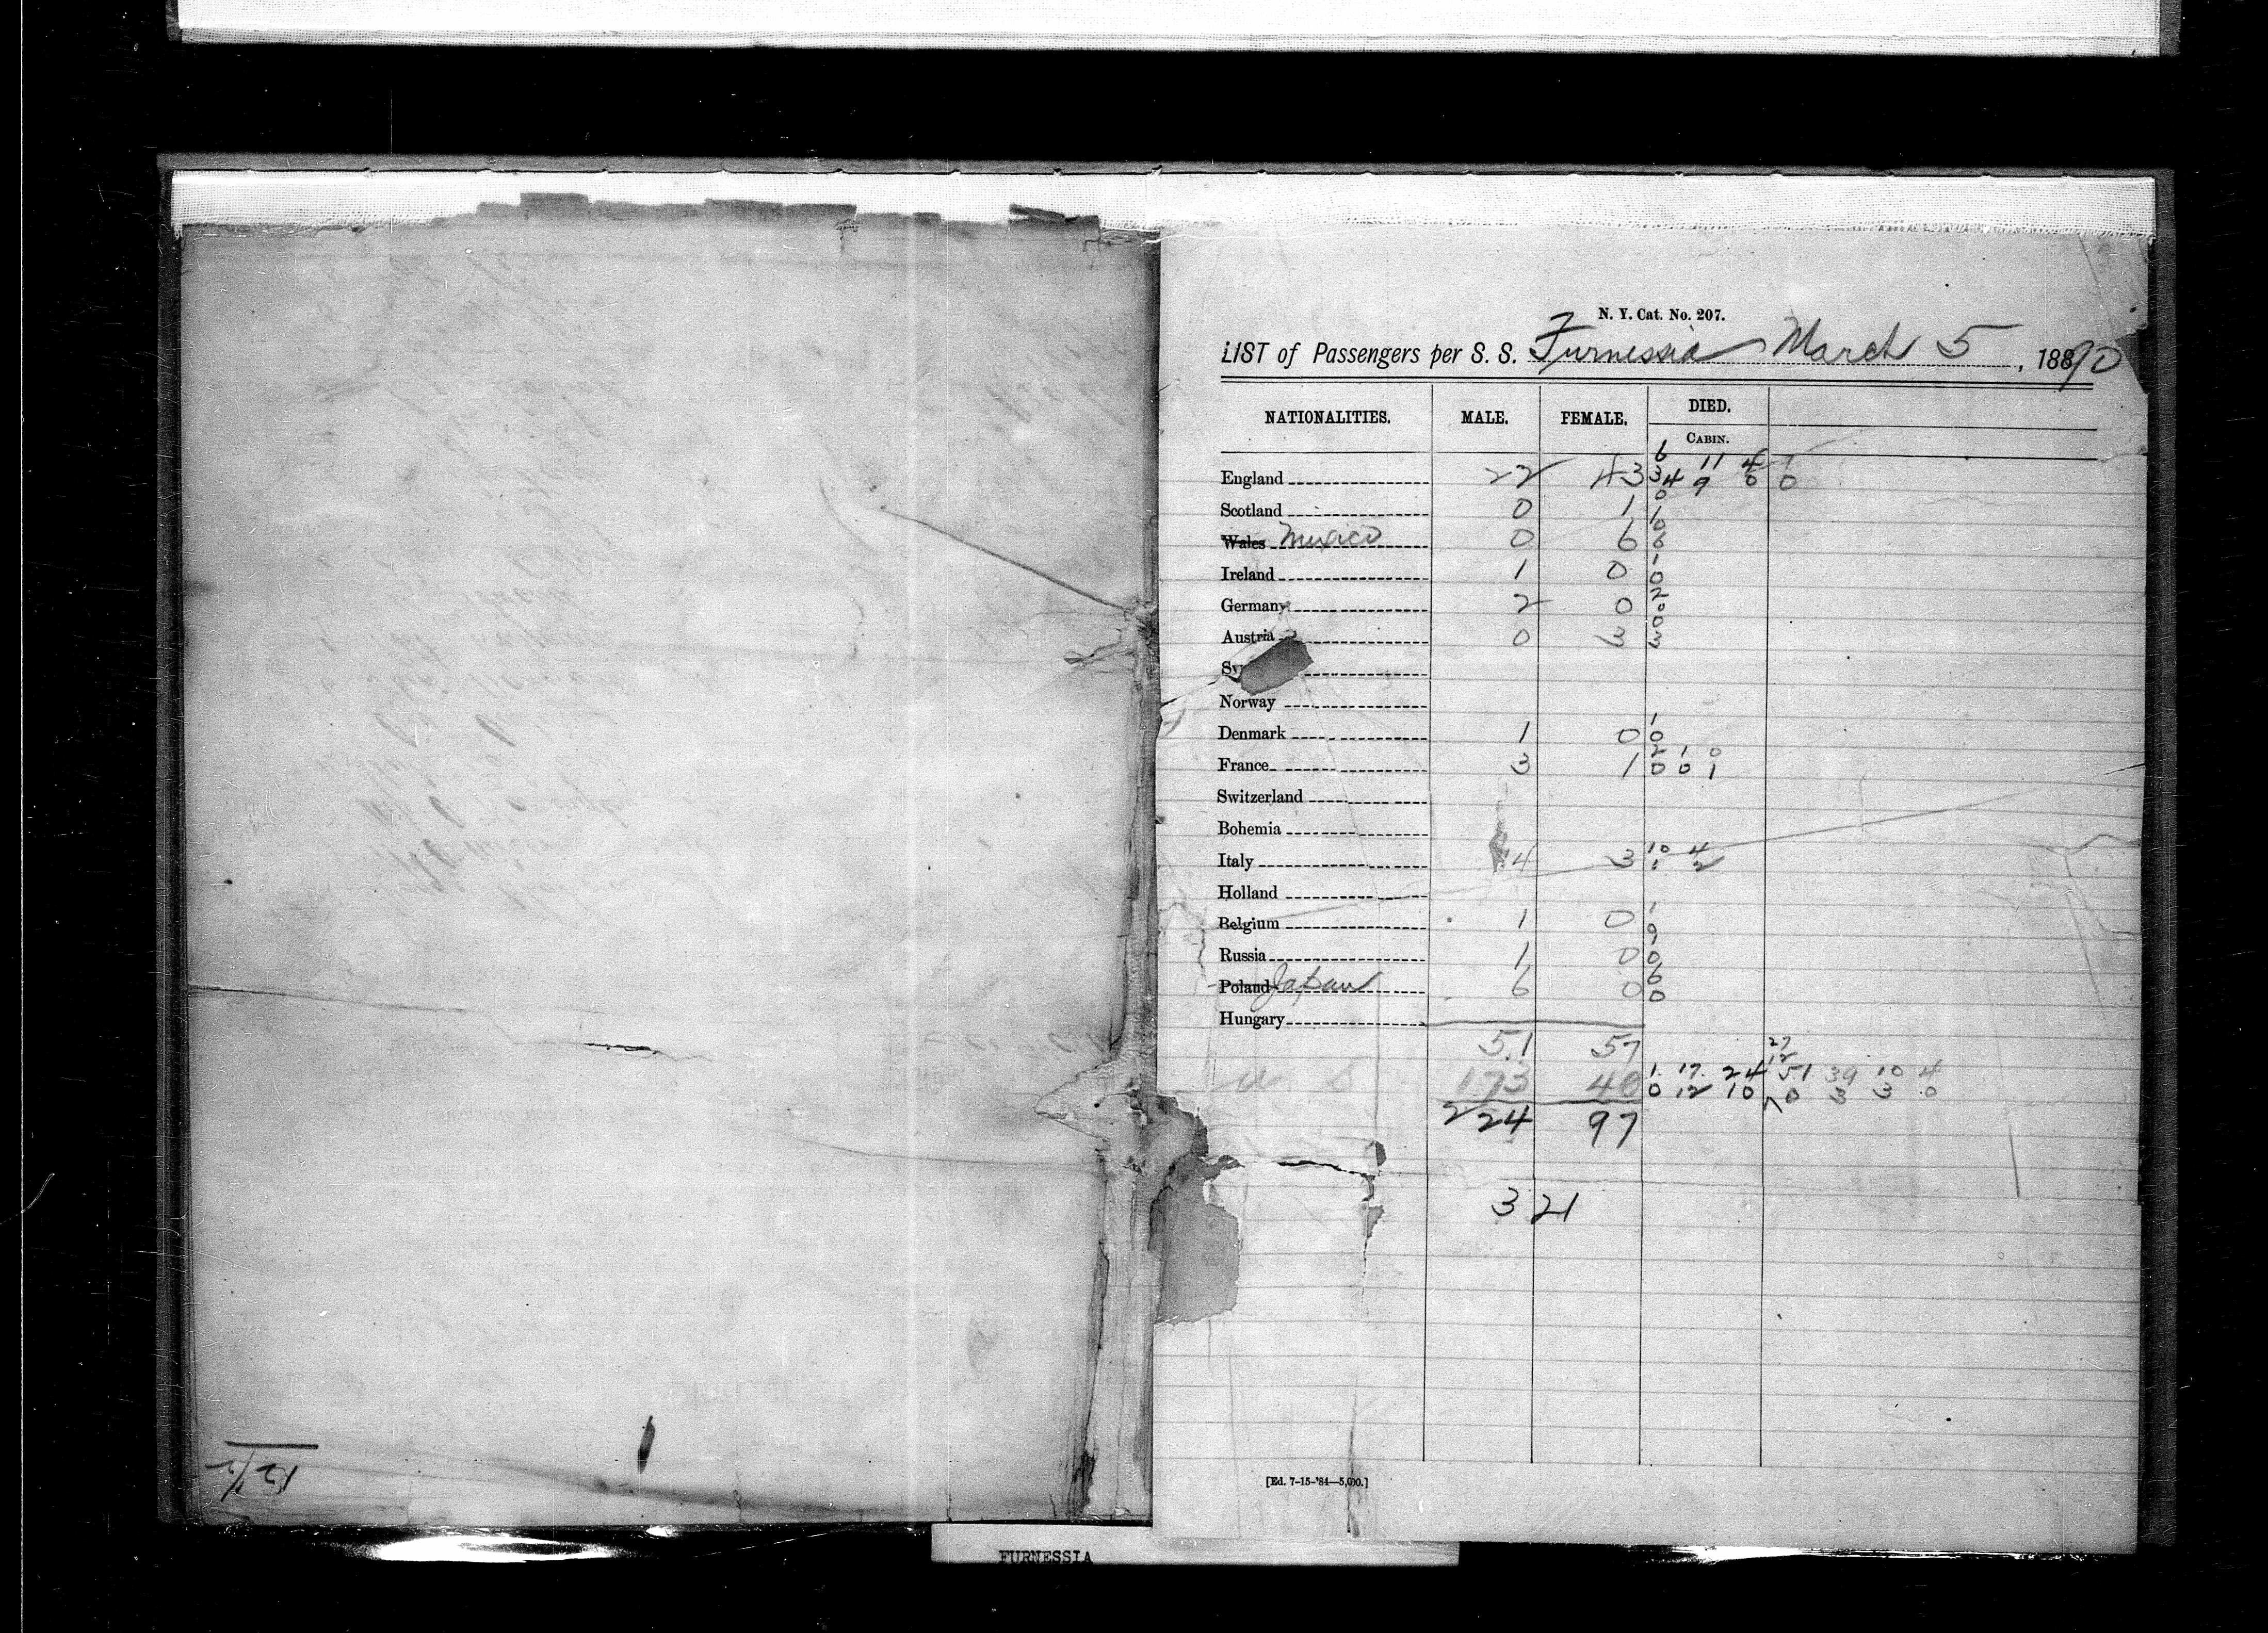 N. Y. Cat. No. 207.
LIST of Passengers per S. S. Furnessia March 5, 18890
NATIONALITIES. MALE. FEMALE. DIED.
CABIN.
6 11 4 1
England 22 43 34 9 0 0
0
Scotland 0 1 1
0
Wales Mexico 0 6 6
1
Ireland 1 0 0
2
Germany 2 0 0
0
Austria 0 3 3
Norway
1
Denmark 1 0 0
2 1 0
France 3 1 0 0 1
Switzerland
Bohemia
10 4
Italy 14 3 1 2
Holland
1
Belgium 1 0 0
1
Russia 1 0 0
6
Poland Japan 6 0 0
Hungary
51 57 27
12
1 17 24 51 39 10 4
U. S. 173 40 0 12 10 0 3 3 0
224 97
321
[Ed. 7-15-'84—5,000.]
12/2
FURNESSIA